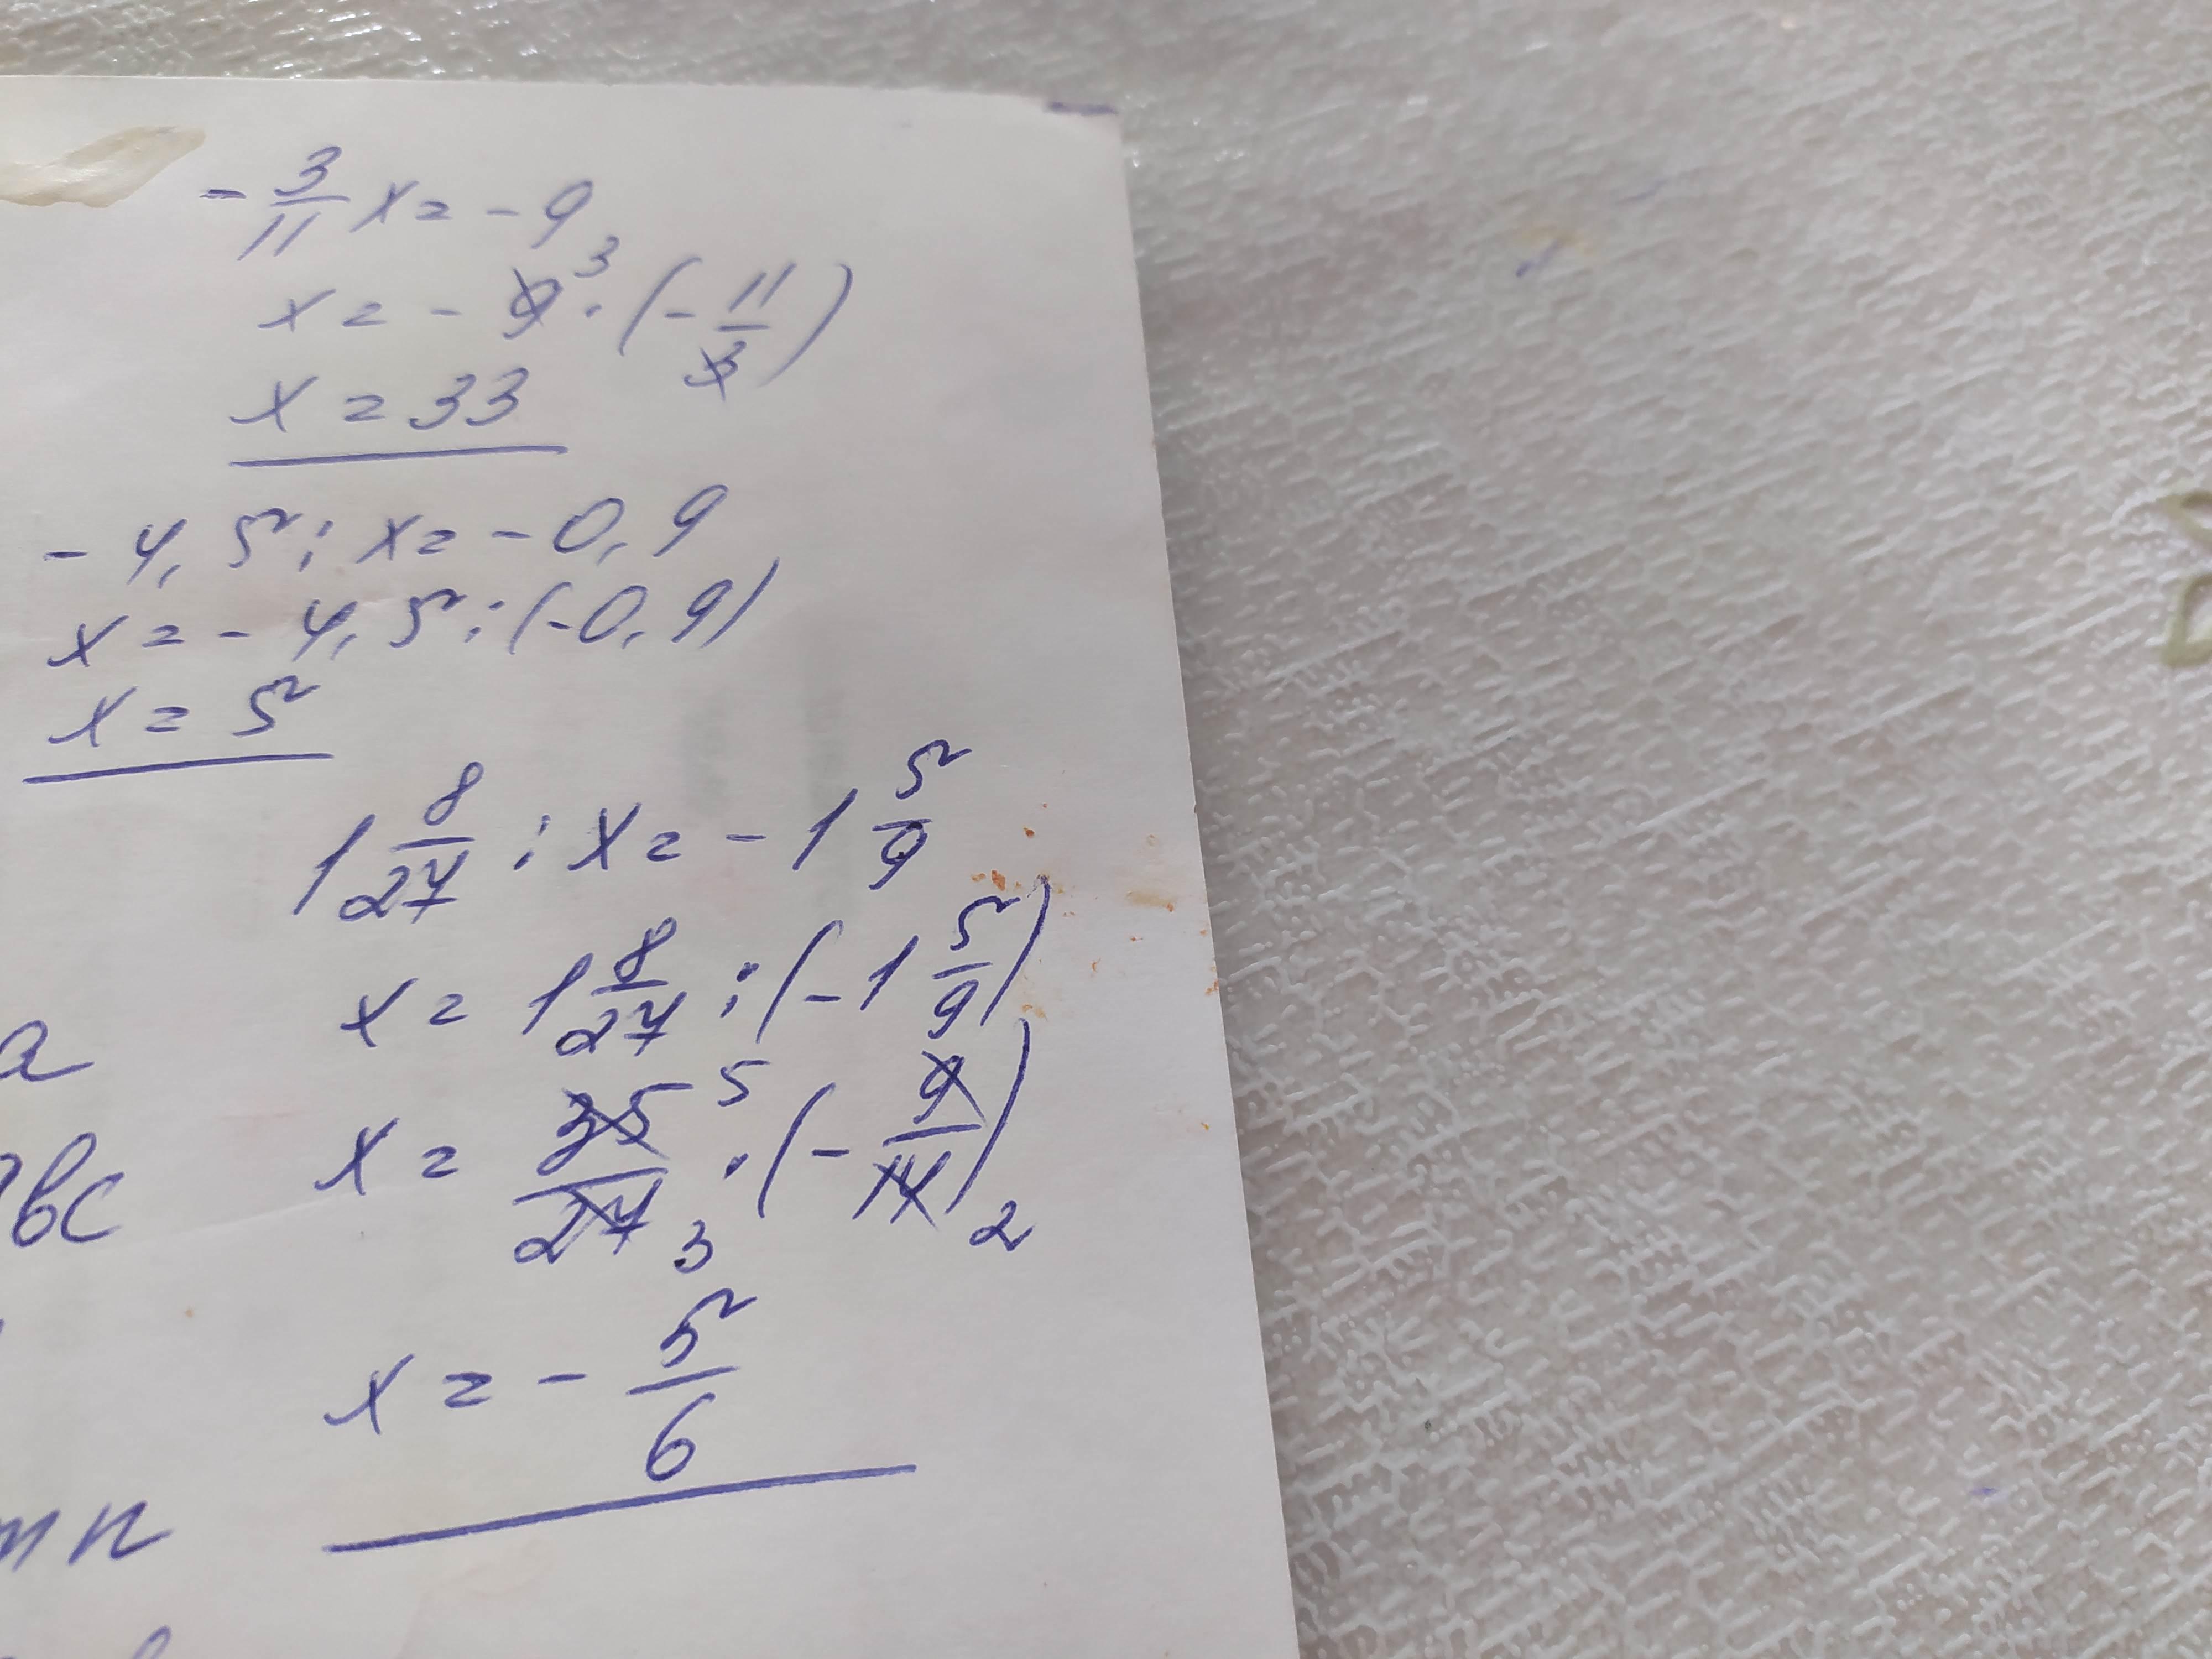 - 3/11 x = - 9
x = - 9 3 · (- 11/3)
x = 33
- 4, 5 : x = - 0, 9
x = - 4, 5 : (- 0, 9)
x = 5
1 8/27 : x = - 1 5/9
x = 1 8/27 : (- 1 5/9)
a
x = 35/27 5 3 · (- 9/14) 2
bc
x = - 5/6
mn